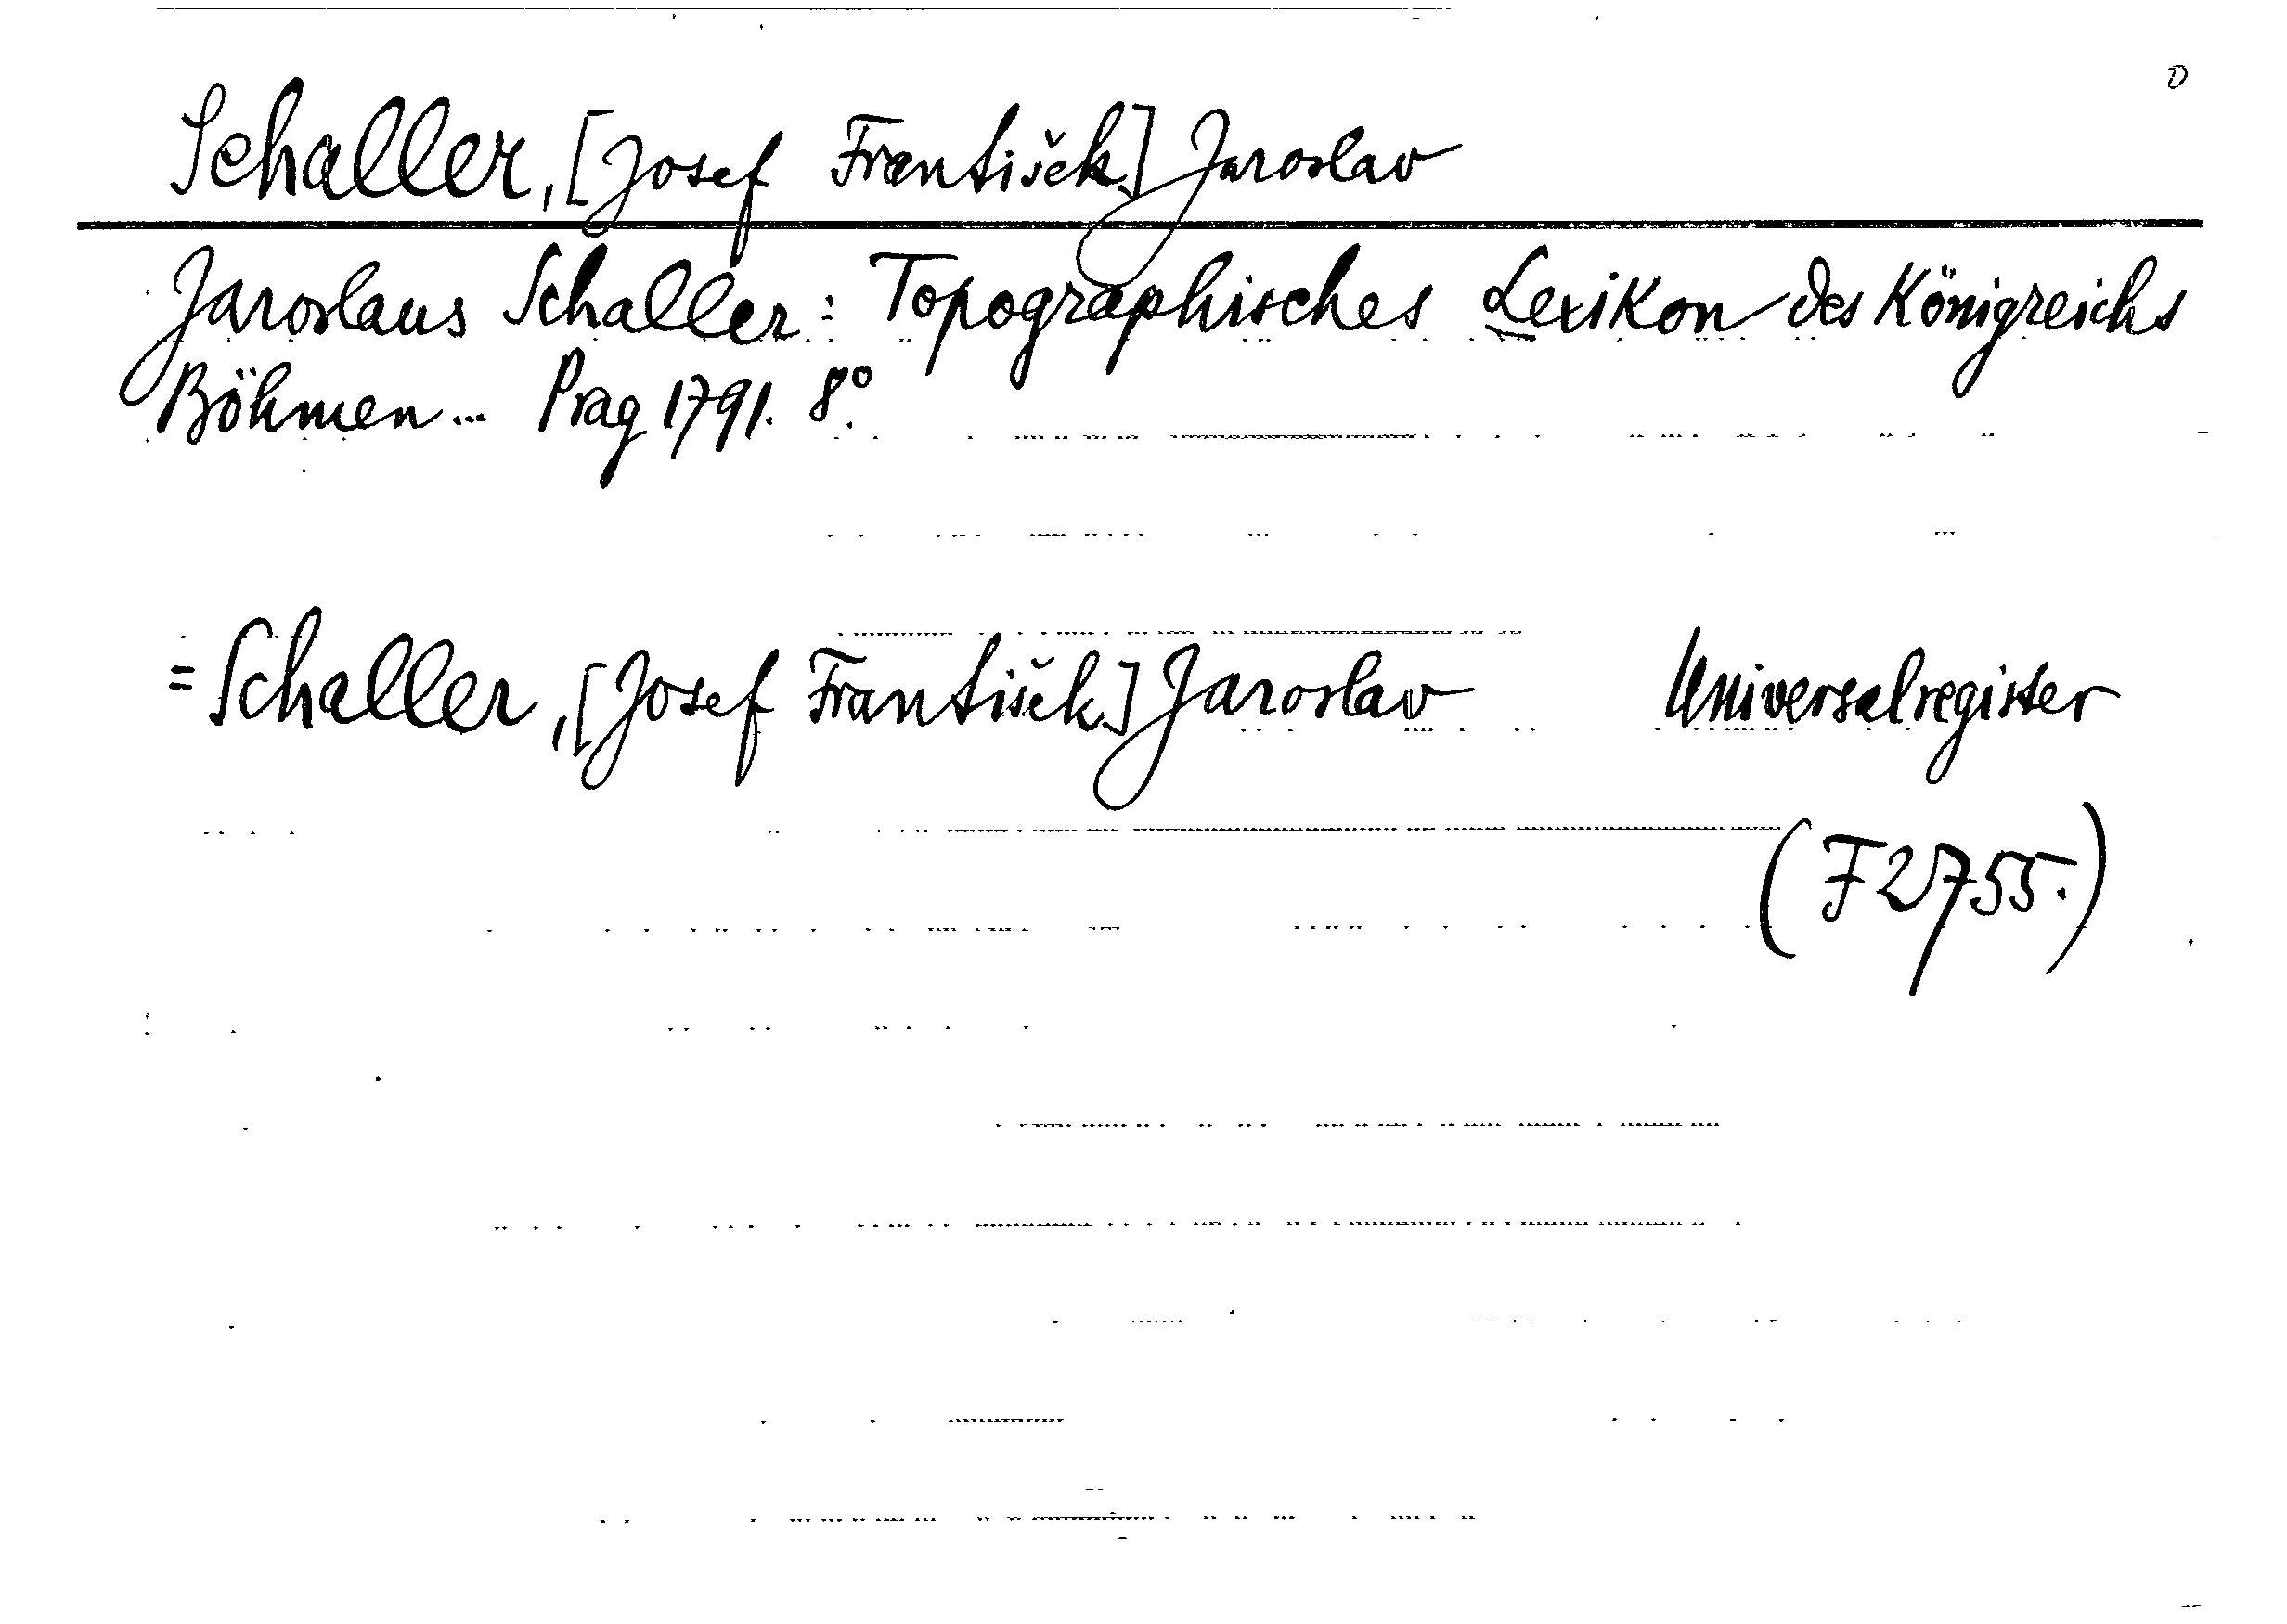 D
Schaller, [Josef František] Jaroslav
Jaroslaus Schaller: Topographisches Lexikon des Königreichs
Böhmen... Prag 1791. 8°.
= Schaller, [Josef František] Jaroslav Universalregister
(F 2755.)